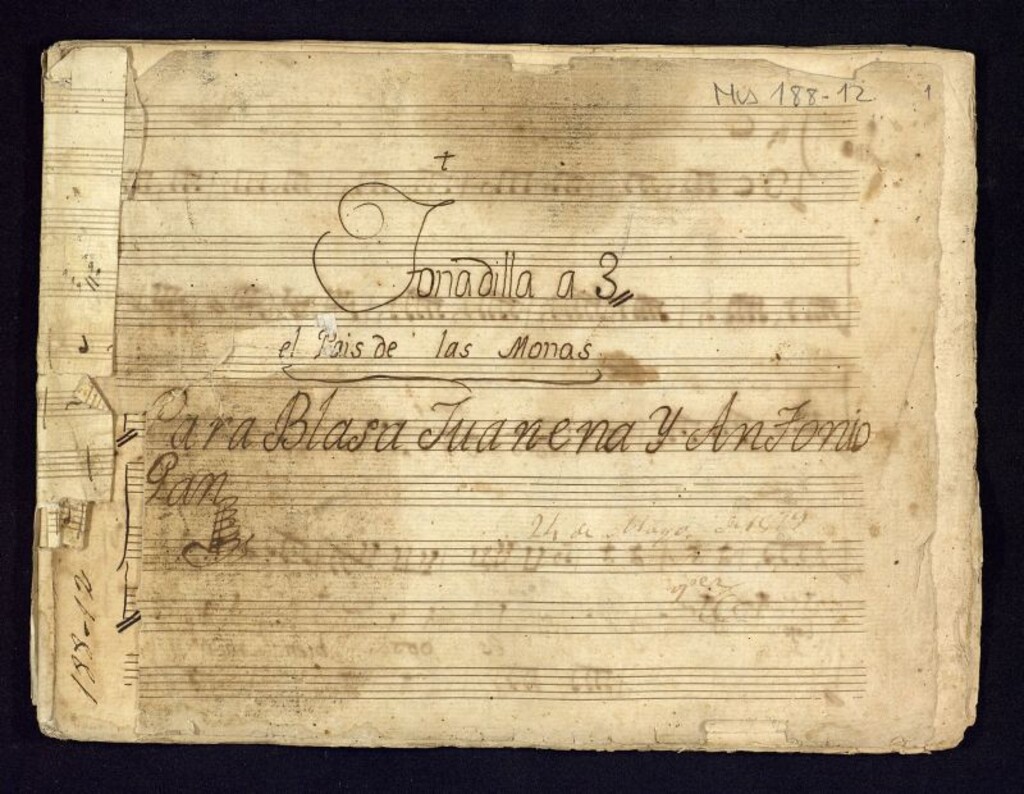 Mus 188-12
1
+
Tonadilla a 3
el Pais de las Monas
Para Blasa Juanena Y Anfonio
Pan
24 de Mayo
188-12